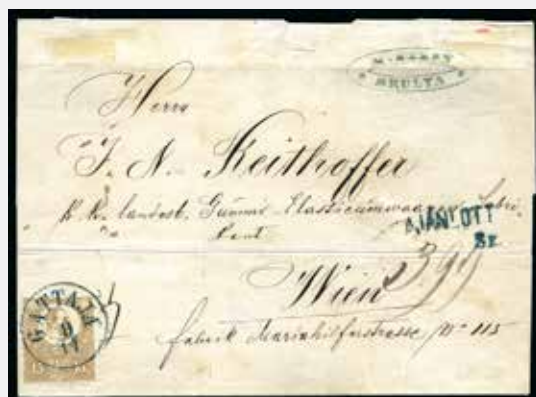 Herrn
J. N. Reithoffer
k. k. landesb. Gummi-Elasticumwaaren-Fabri-
kant
AJÁNLOTT
Wien
GATTAJA
9
11
15
Fabrik Mariahilferstrasse No 115